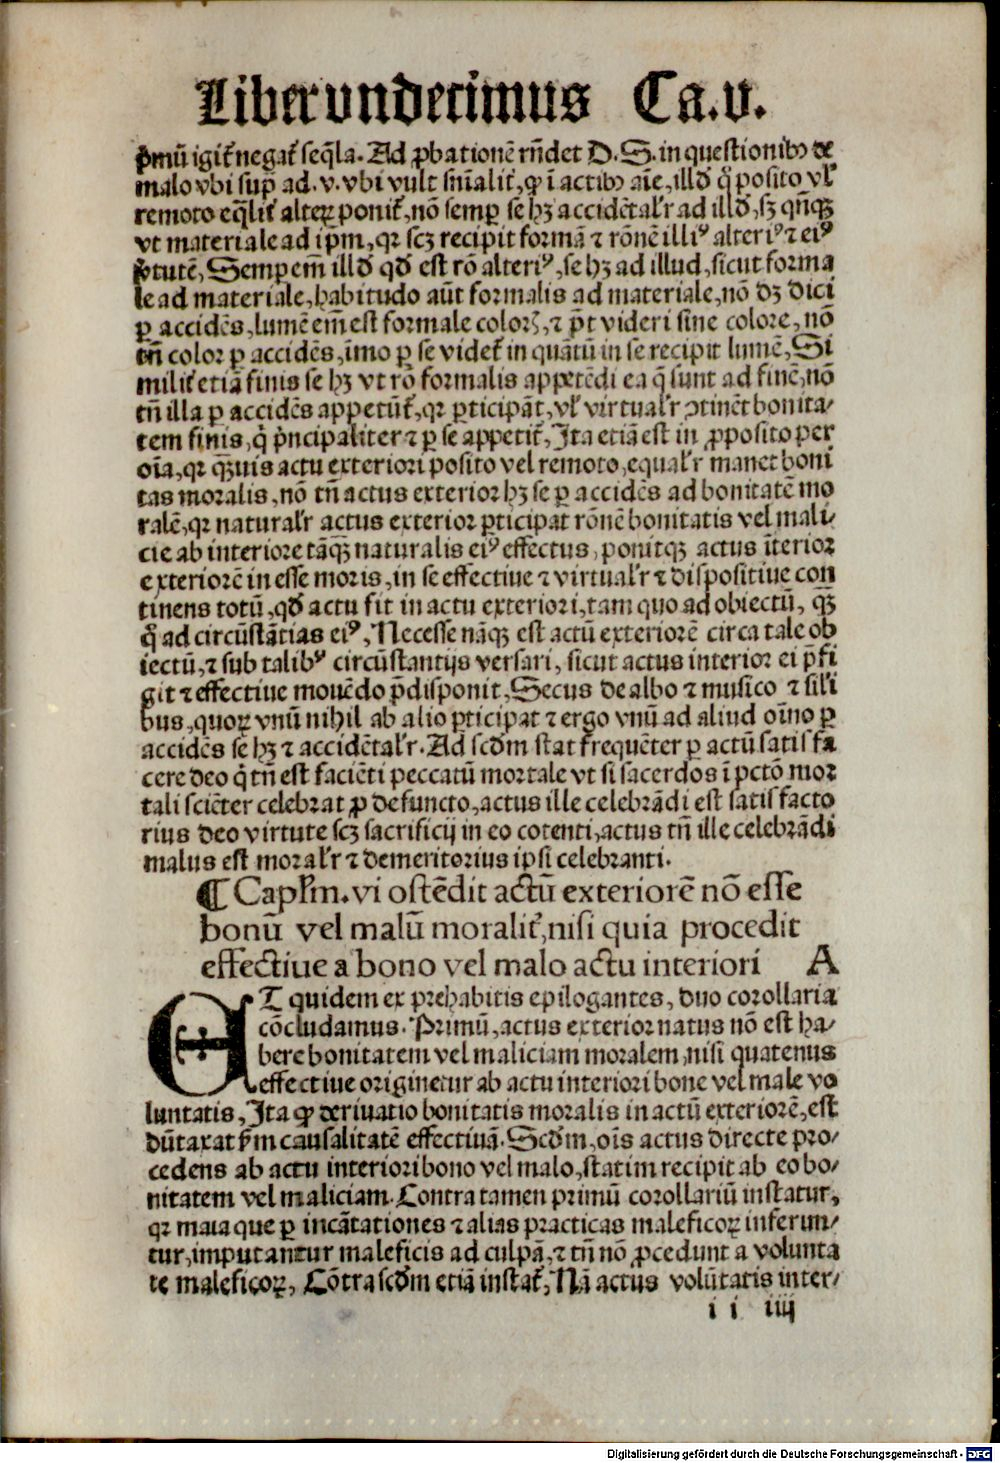 Liber vndecimus Ca.v.
p̄mū igit᷑ negat᷑ seq̄la. Ad ꝓbationē rn̄det D. S. in questionibꝰ de
malo vbi sup̄ ad .v. vbi vult sn̄ialit᷑, ꝙ ī actibꝰ aīe, illđ qͦ posito vl̓
remoto eq̄lit᷑ alteꝝ ponit᷑, nō semꝑ se hꝫ accidētal̓r ad illđ, sꝫ qn̄qꝫ
vt materiale ad ip̄m, qꝛ scꝫ recipit formā ⁊ rōnē illiꝰ alteriꝰ ⁊ eiꝰ
v̓tutē, Semꝑ em̄ illđ qđ est rō alteriꝰ, se hꝫ ad illud, sicut forma
le ad materiale, habitudo aūt formalis ad materiale, nō dꝫ dici
ꝑ accidēs, lumē em̄ est formale coloꝝ, ⁊ p̄t videri sine colore, nō
tn̄ color ꝑ accidēs, īmo ꝑ se videt᷑ in quātū in se recipit lumē, Si
milit᷑ etiā finis se hꝫ vt rō formalis appetēdi ea q̄ sunt ad finē, nō
tn̄ illa ꝑ accidēs appetūt᷑, qꝛ ꝑticipāt, vl̓ virtual̓r ꝯtinēt bonita-
tem finis, q̇ pͥncipaliter ⁊ ꝑ se appetit᷑, Ita etiā est in ꝓposito per
oīa, qꝛ qꝫuis actu exteriori posito vel remoto, equal̓r manet boni
tas moralis, nō tn̄ actus exterior hꝫ se ꝑ accidēs ad bonitatē mo
ralē, qꝛ natural̓r actus exterior ꝑticipat rōnē bonitatis vel mali-
cie ab interiore tāqꝫ naturalis eiꝰ effectus, ponitqꝫ actus īterior
exteriorē in esse moris, in se effectiue ⁊ virtual̓r ⁊ dispositiue con
tinens totū, qđ actu fit in actu exteriori, tam quo ad obiectū, qꝫ
qͦ ad circūstātias eiꝰ, Necesse nāqꝫ est actū exteriorē circa tale ob
iectū, ⁊ sub talibꝰ circūstantijs versari, sicut actus interior ei p̄fi
git ⁊ effectiue mouēdo p̄disponit, Secus de albo ⁊ musico ⁊ sil̓i
bus, quoꝝ vnū nihil ab alio ꝑticipat ⁊ ergo vnū ad aliud oīno ꝑ
accidēs se hꝫ ⁊ accidētal̓r. Ad scđm stat frequēter ꝑ actū satisfa
cere deo q̇ tn̄ est faciēti peccatū mortale vt si sacerdos ī pctō mor
tali sciēter celebrat ꝓ defuncto, actus ille celebrādi est satisfacto
rius deo virtute scꝫ sacrificij in eo cotenti, actus tn̄ ille celebrādi
malus est moral̓r ⁊ demeritorius ipsi celebranti.
¶ Capl̓m.vi ostēdit actū exteriorē nō esse
bonū vel malū moralit᷑, nisi quia procedit
effectiue a bono vel malo actu interiori A
ET quidem ex prehabitis epilogantes, duo corollaria
cōcludamus. Primū, actus exterior natus nō est ha-
bere bonitatem vel maliciam moralem, nisi quatenus
effectiue originetur ab actu interiori bone vel male vo
luntatis, Ita ꝙ deriuatio bonitatis moralis in actū exteriorē, est
dūtaxat ẜm causalitatē effectiuā. Scđm, oīs actus directe pro-
cedens ab actu interiori bono vel malo, statim recipit ab eo bo-
nitatem vel maliciam. Contra tamen primū corollariū instatur,
qꝛ mala que ꝑ incātationes ⁊ alias practicas maleficoꝝ inferun-
tur, imputantur maleficis ad culpā, ⁊ tn̄ nō ꝓcedunt a volunta
te maleficoꝝ, Cōtra scđm etiā instat᷑, Nā actus volūtatis inter-
i i iiij
Digitalisierung gefördert durch die Deutsche Forschungsgemeinschaft - DFG